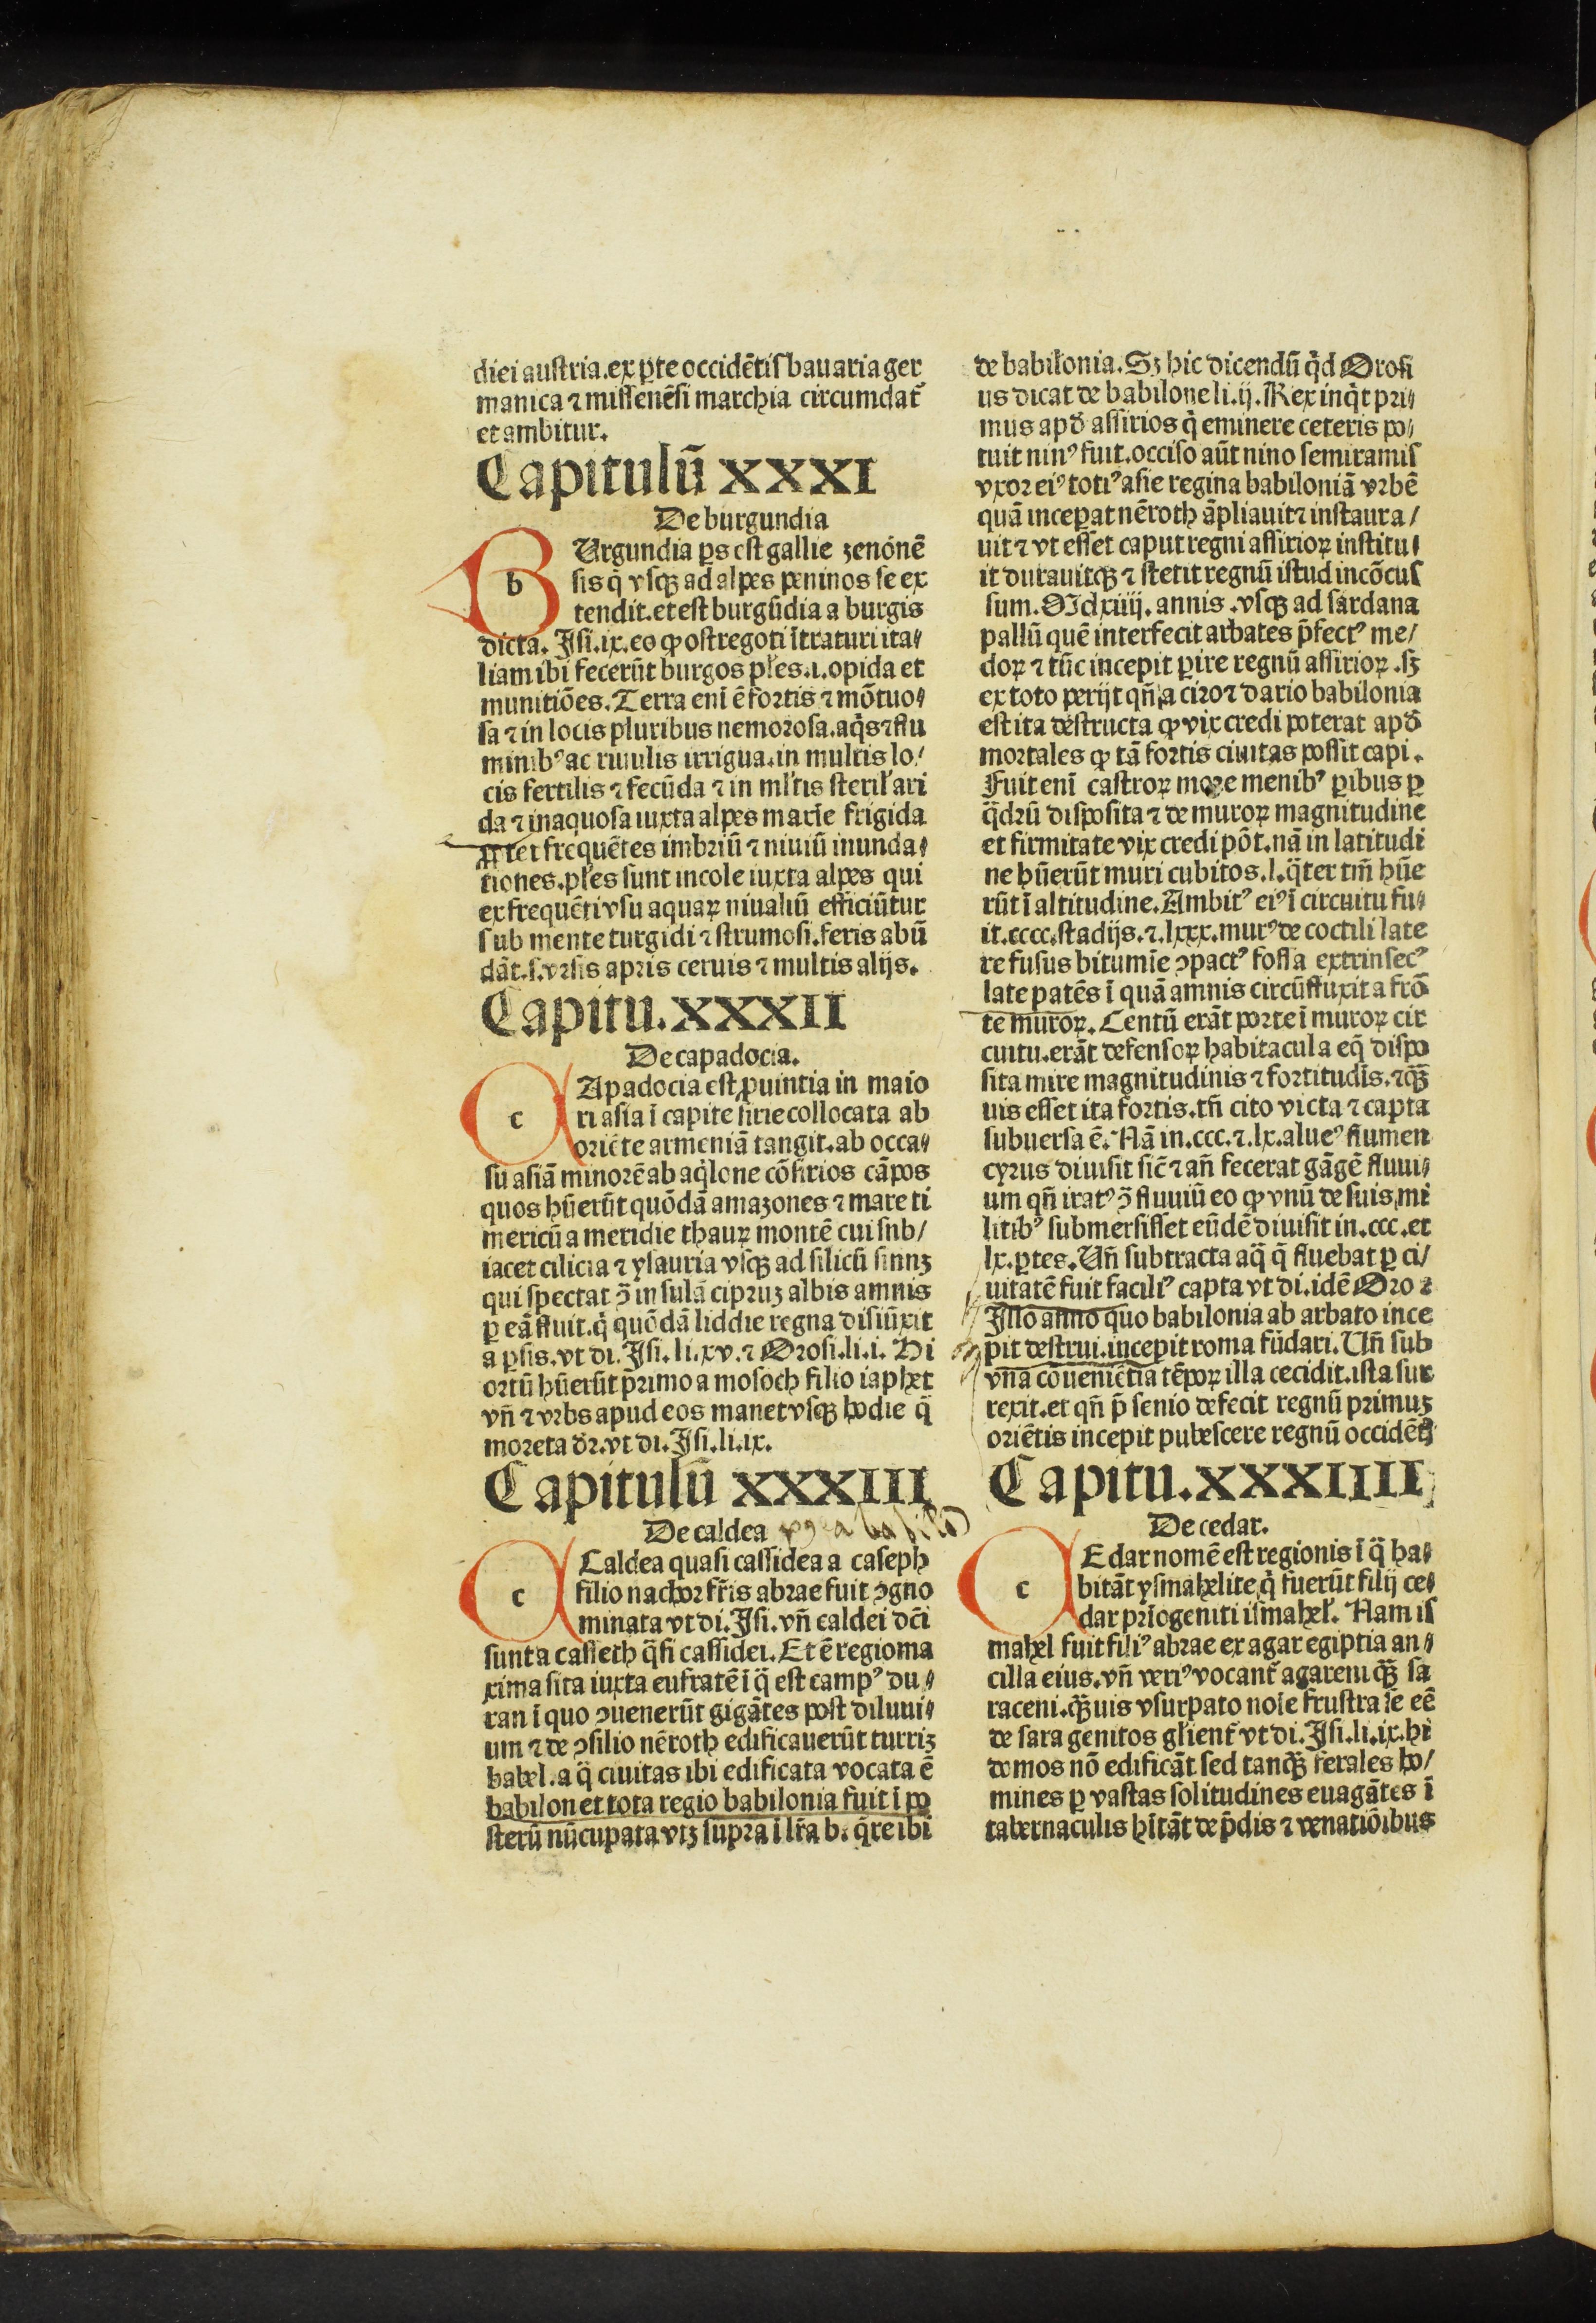 diei austria.ex ꝑte occidētis bauaria ger
manica ⁊ missenēsi marchia circumdat᷑
et ambitur.
Capitulū XXXI
De burgundia
b
BUrgundia ꝑs est gallie zenonē
sis q̄ vsqꝫ ad alpes peninos se ex
tendit.et est burgūdia a burgis
dicta. Isi.ix.eo ꝙ ostregoti ītraturi ita⸗
liam ibi fecerūt burgos pl̄es.i.opida et
munitiōes.Terra enī ē fortis ⁊ mōtuo⸗
sa ⁊ in locis pluribus nemorosa.aq̄s ⁊ flu
minibꝰ ac riuulis irrigua.in multis lo/
cis fertilis ⁊ fecūda ⁊ in ml̄tis steril̄ ari
da ⁊ inaquosa iuxta alpes maxīe frigida
ꝓpter frequētes imbriū ⁊ niuiū inunda⸗
tiones.pl̄es sunt incole iuxta alpes qui
ex frequēti vsu aquaꝝ niualiū efficiūtur
sub mente turgidi ⁊ strumosi.feris abū
dāt.s.vrsis apris ceruis ⁊ multis alijs.
Capitu.XXXII
De capadocia.
c
CApadocia est ꝓuintia in maio
ri asia ī capite sirie collocata ab
oriēte armeniā tangit.ab occa⸗
su asiā minorē ab aq̇lone cōsirios cāpos
quos hūerūt quōdā amazones ⁊ mare ti
mericū a meridie thauꝝ montē cui sub/
iacet cilicia ⁊ ysauria vsqꝫ ad silicū sinuꝫ
qui spectat ꝯ̄ insulā cipruꝫ albis amnis
ꝑ eā fluit.q̇ quōdā liddie regna disiūxit
a ꝑsis.vt di. Isi.li.xv.⁊ Orosi.li.i. Hi
ortū hūerūt primo a mosoch filio iaphet
vn̄ ⁊ vrbs apud eos manet vsqꝫ hodie q̄
moreta dr̄.vt di. Isi.li.ix.
Capitulū XXXIII
De caldea
c
CCaldea quasi cassidea a caseph
filio nachor fr̄is abrae fuit ꝯgno
minata vt di. Isi.vn̄ caldei dc̄i
sunt a casseth q̄si cassidei. Et ē regio ma
xima sita iuxta eufratē ī q̄ est campꝰ du⸗
ran ī quo ꝯuenerūt gigātes post diluui⸗
um ⁊ de ꝯsilio nēroth edificauerūt turriꝫ
babel.a q̄ ciuitas ibi edificata vocata ē
babilon et tota regio babilonia fuit ī po
sterū nūcupata vtꝫ supra ī lr̄a b. q̄re ibi
de babilonia. Sꝫ hic dicendū q̇d Orosi
us dicat de babilone li.ij. Rex inq̇t pri⸗
mus apd̄ assirios q̇ eminere ceteris po/
tuit ninꝰ fuit.occiso aūt nino semiramis
vxor eiꝰ totiꝰ asie regina babiloniā vrbē
quā inceperat nēroth āpliauit ⁊ instaura/
uit ⁊ vt esset caput regni assirioꝝ institu⸗
it durauitqꝫ ⁊ stetit regnū istud incōcus
sum. Mclxiiij. annis .vsqꝫ ad sardana
pallū quē interfecit arbates p̄fectꝰ me/
doꝝ ⁊ tūc incepit ꝑire regnū assirioꝝ .sꝫ
ex toto perijt qn̄ a ciro ⁊ dario babilonia
est ita destructa ꝙ vix credi poterat apd̄
mortales ꝙ tā fortis ciuitas possit capi.
Fuit enī castroꝝ more menibꝰ ꝑibus ꝑ
q̄drū disposita ⁊ de muroꝝ magnitudine
et firmitate vix credi pōt.nā in latitudi
ne hūerūt muri cubitos.l.q̄ter tm̄ hūe
rūt ī altitudine. Ambitꝰ eiꝰ ī circuitu fu⸗
it.cccc.stadijs.⁊.lxxx.murꝰ de coctili late
re fusus bitumīe ꝯpactꝰ fossa extrinsecꝰ
late patēs ī quā amnis circūfluxit a frō
te muroꝝ. Centū erāt porte ī muroꝝ cir
cuitu.erāt defensoꝝ habitacula eq̄ dispo
sita mire magnitudinis ⁊ fortitudīs.⁊qꝫ
uis esset ita fortis.tn̄ cito victa ⁊ capta
subuersa ē. Nā in.ccc.⁊.lx.alueꝰ flumen
cyrus diuisit sic̄ ⁊ an̄ fecerat gāgē fluui⸗
um qn̄ iratꝰ ꝯ̄ fluuiū eo ꝙ vnū de suis mi
litibꝰ submersisset eūdē diuisit in.ccc.et
lx.ꝑtes. Un̄ subtracta aq̄ q̄ fluebat ꝑ ci/
uitatē fuit faciliꝰ capta vt di.idē Oro⁊
Illo anno quo babilonia ab arbato ince
pit destrui.incepit roma fūdari. Un̄ sub
vna cōueniētia tēpoꝝ illa cecidit.ista sur
rexit.et qn̄ p̄ senio defecit regnū primuꝫ
oriētis incepit pubescere regnū occidētꝭ
Capitu.XXXIIII
De cedar.
c
CEdar nomē est regionis ī q̄ ha⸗
bitāt ysmahelite q̇ fuerūt filij ce⸗
dar prīogeniti ismahel̄. Nam is
mahel fuit filiꝰ abrae ex agar egiptia an⸗
cilla eius.vn̄ veriꝰ vocant᷑ agareni qꝫ sa
raceni.qꝫuis vsurpato noīe frustra īe eē
de sara genitos gl̄ient᷑ vt di. Isi.li.ix.hi
domos nō edificāt sed tanqꝫ ferales ho/
mines ꝑ vastas solitudines euagātes ī
tabernaculis hītāt de p̄dis ⁊ venatiōibus